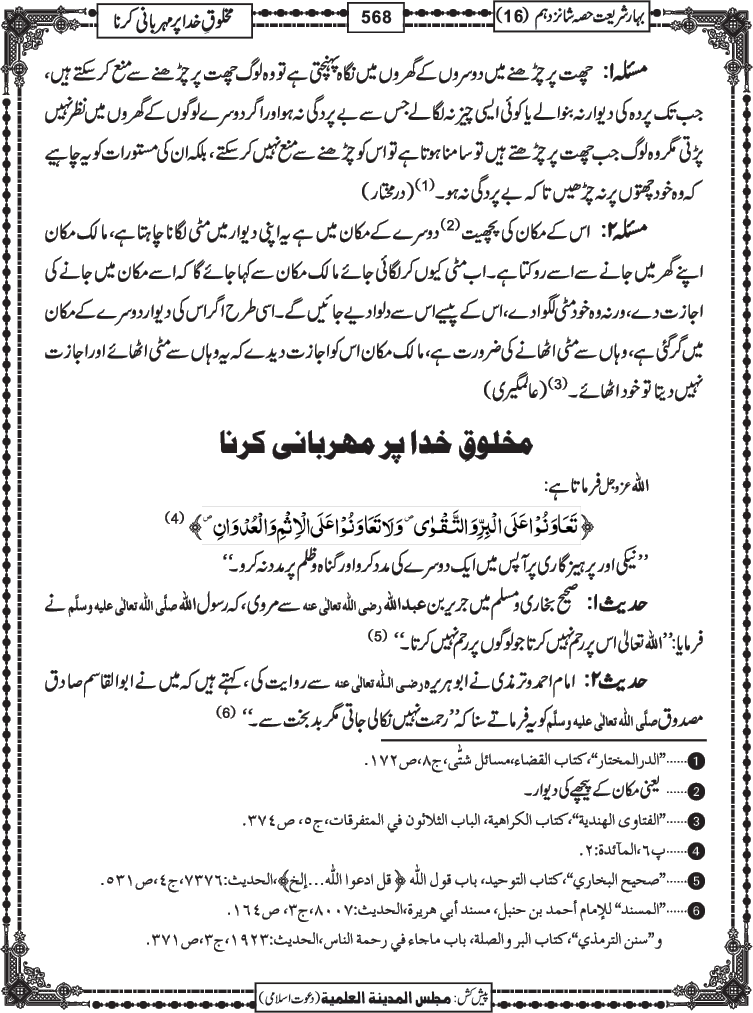 بہار شریعت حصہ شانزدہم (16)
568
مخلوقِ خدا پر مہربانی کرنا
مسئلہ ۱: چھت پر چڑھنے میں دوسروں کے گھروں میں نگاہ پہنچتی ہے تو وہ لوگ چھت پر چڑھنے سے منع کرسکتے ہیں،
جب تک پردہ کی دیوار نہ بنوالے یا کوئی ایسی چیز نہ لگالے جس سے بے پردگی نہ ہو اور اگر دوسرے لوگوں کے گھروں میں نظر نہیں
پڑتی مگر وہ لوگ جب چھت پر چڑھتے ہیں تو سامنا ہوتا ہے تو اس کو چڑھنے سے منع نہیں کرسکتے، بلکہ ان کی مستورات کو یہ چاہیے
کہ وہ خود چھتوں پر نہ چڑھیں تا کہ بے پردگی نہ ہو۔(1) (درمختار)
مسئلہ ۲: اس کے مکان کی پچھیت(2) دوسرے کے مکان میں ہے یہ اپنی دیوار میں مٹی لگانا چاہتا ہے، مالک مکان
اپنے گھر میں جانے سے اسے روکتا ہے۔ اب مٹی کیوں کر لگائی جائے مالک مکان سے کہا جائے گا کہ اسے مکان میں جانے کی
اجازت دے، ورنہ وہ خود مٹی لگوادے، اس کے پیسے اس سے دلوادیے جائیں گے۔ اسی طرح اگر اس کی دیوار دوسرے کے مکان
میں گر گئی ہے، وہاں سے مٹی اٹھانے کی ضرورت ہے، مالک مکان اس کو اجازت دیدے کہ یہ وہاں سے مٹی اٹھائے اور اجازت
نہیں دیتا تو خود اٹھائے۔(3) (عالمگیری)
مخلوقِ خدا پر مہربانی کرنا
اللہ عزوجل فرماتا ہے:
﴿ تَعَاوَنُوْا عَلَى الْبِرِّ وَالتَّقْوٰى ۖ وَلَا تَعَاوَنُوْا عَلَى الْاِثْمِ وَالْعُدْوَانِ ۖ ﴾ (4)
’’نیکی اور پرہیزگاری پر آپس میں ایک دوسرے کی مدد کرو اور گناہ و ظلم پر مدد نہ کرو۔‘‘
حدیث ۱: صحیح بخاری و مسلم میں جریر بن عبداللہ رضی اللہ تعالٰی عنہ سے مروی، کہ رسول اللہ صلَّی اللہ تعالٰی علیہ وسلَّم نے
فرمایا: ’’اللہ تعالیٰ اس پر رحم نہیں کرتا جو لوگوں پر رحم نہیں کرتا۔‘‘ (5)
حدیث ۲: امام احمد و ترمذی نے ابوہریرہ رضی اللہ تعالٰی عنہ سے روایت کی، کہتے ہیں کہ میں نے ابوالقاسم صادق
مصدوق صلَّی اللہ تعالٰی علیہ وسلَّم کو یہ فرماتے سنا کہ ’’رحمت نہیں نکالی جاتی مگر بدبخت سے۔‘‘ (6)
1 ......”الدرالمختار“، کتاب القضاء، مسائل شتّٰی، ج۸، ص۱۷۲.
2 ...... یعنی مکان کے پیچھے کی دیوار۔
3 ......”الفتاوی الهندية“، کتاب الکراهية، الباب الثلاثون في المتفرقات، ج۵، ص۳۷۴.
4 ...... پ۶، المآئدة: ۲.
5 ......”صحيح البخاري“، کتاب التوحيد، باب قول اللّٰه ﴿ قل ادعوا اللّٰه...إلخ﴾، الحديث: ۷۳۷۶، ج۴، ص۵۳۱.
6 ......”المسند“ للإمام أحمد بن حنبل، مسند أبي هريرة، الحديث: ۸۰۰۷، ج۳، ص۱۶۴.
و”سنن الترمذي“، کتاب البر والصلة، باب ماجاء في رحمة الناس، الحديث: ۱۹۲۳، ج۳، ص۳۷۱.
پیش کش: مجلس المدينة العلمية (دعوت اسلامی)